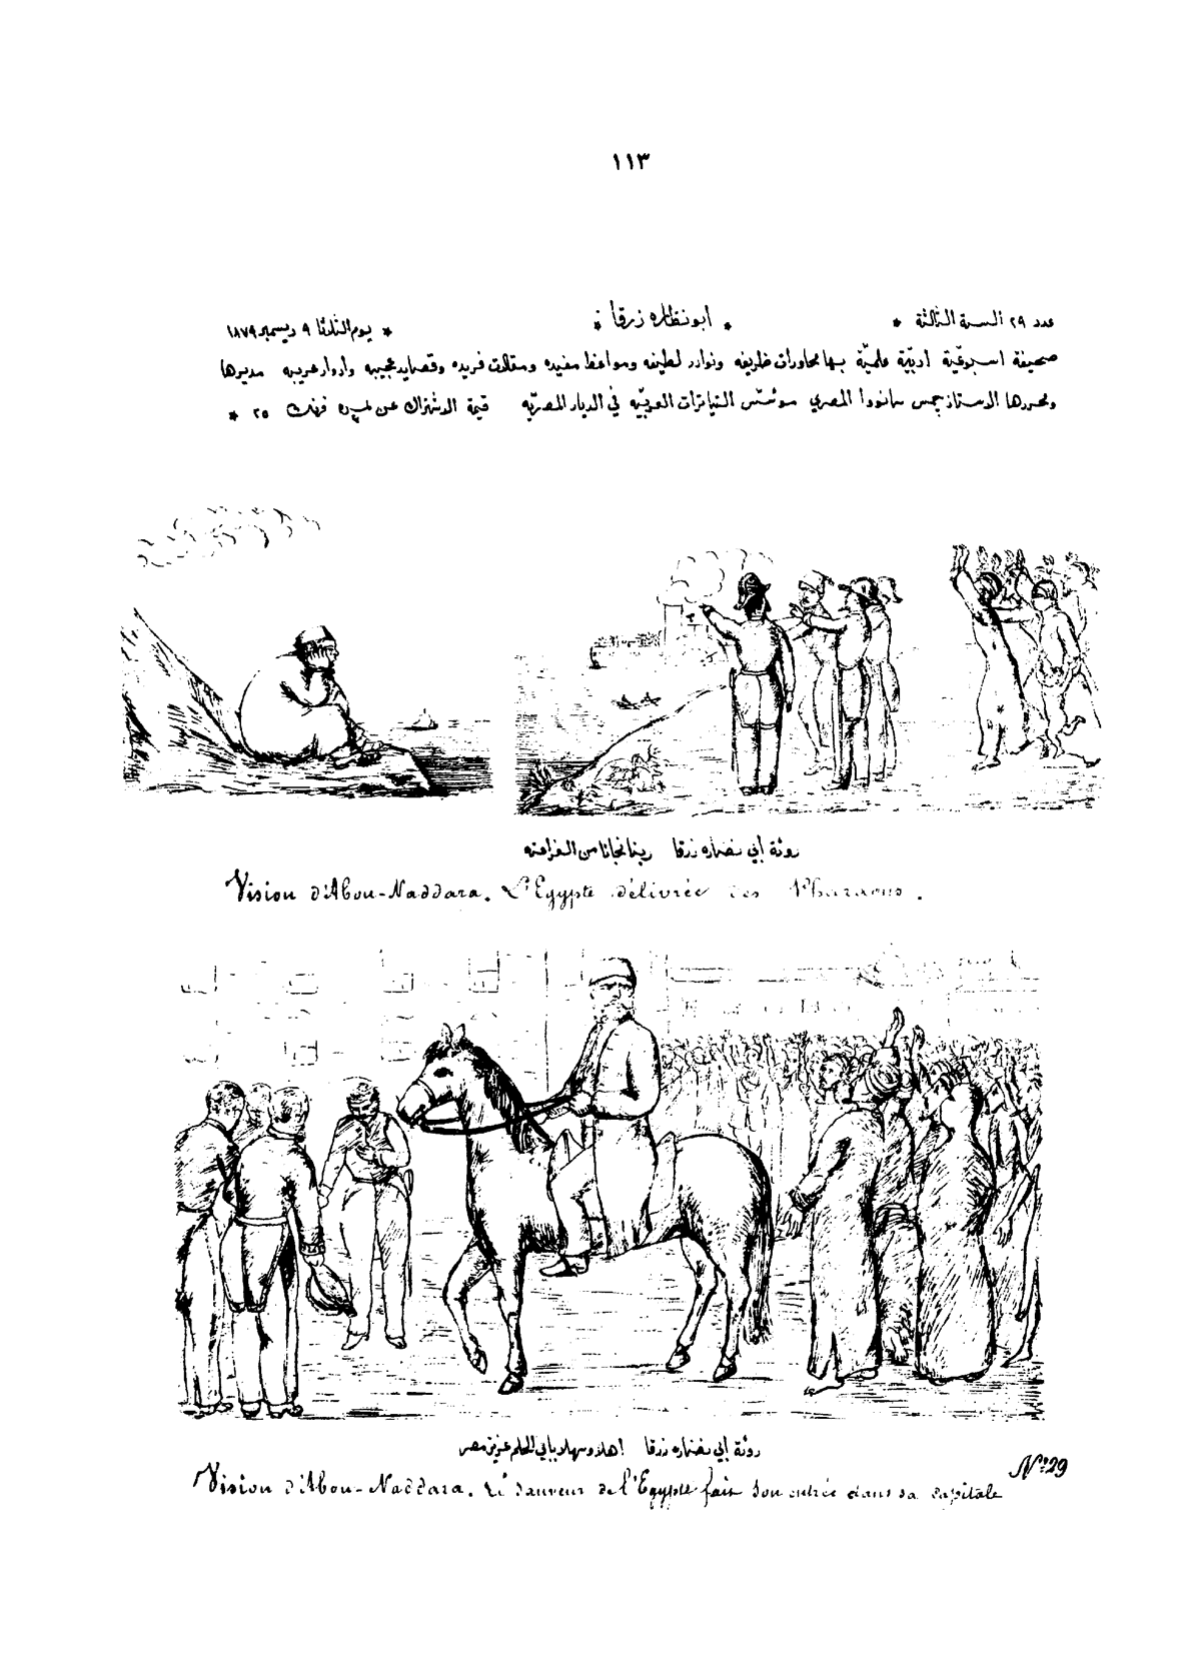 ١١٣
عدد ٢٩ السنة الثالثة * * ابو نظاره زرقا * * يوم الثلاثا ٩ ديسمبر ١٨٧٩
صحيفة اسبوعية ادبيّة علميّة بها محاورات ظريفه ونوادر لطيفه ومواعظ مفيده ومقالات فريده وقصايد عجيبه وادوار غريبه مديرها
ومحررها الاستاذ جمس سانووا المصري موئسّس التياترات العربيّه في الديار المصريّه قيمة الاشتراك عن سنه فرنك ٢٥ *
روئة أبي نضاره زرقا ربنا نجانا من الفراعنه
Vision d'Abou-Naddara. L'Egypte délivrée des Pharaons.
روئة أبي نضاره زرقا اهلا وسهلا بابي الحلم عزيز مصر
Nº 29
Vision d'Abou-Naddara. Le Sauveur de l'Egypte fait son entrée dans sa capitale